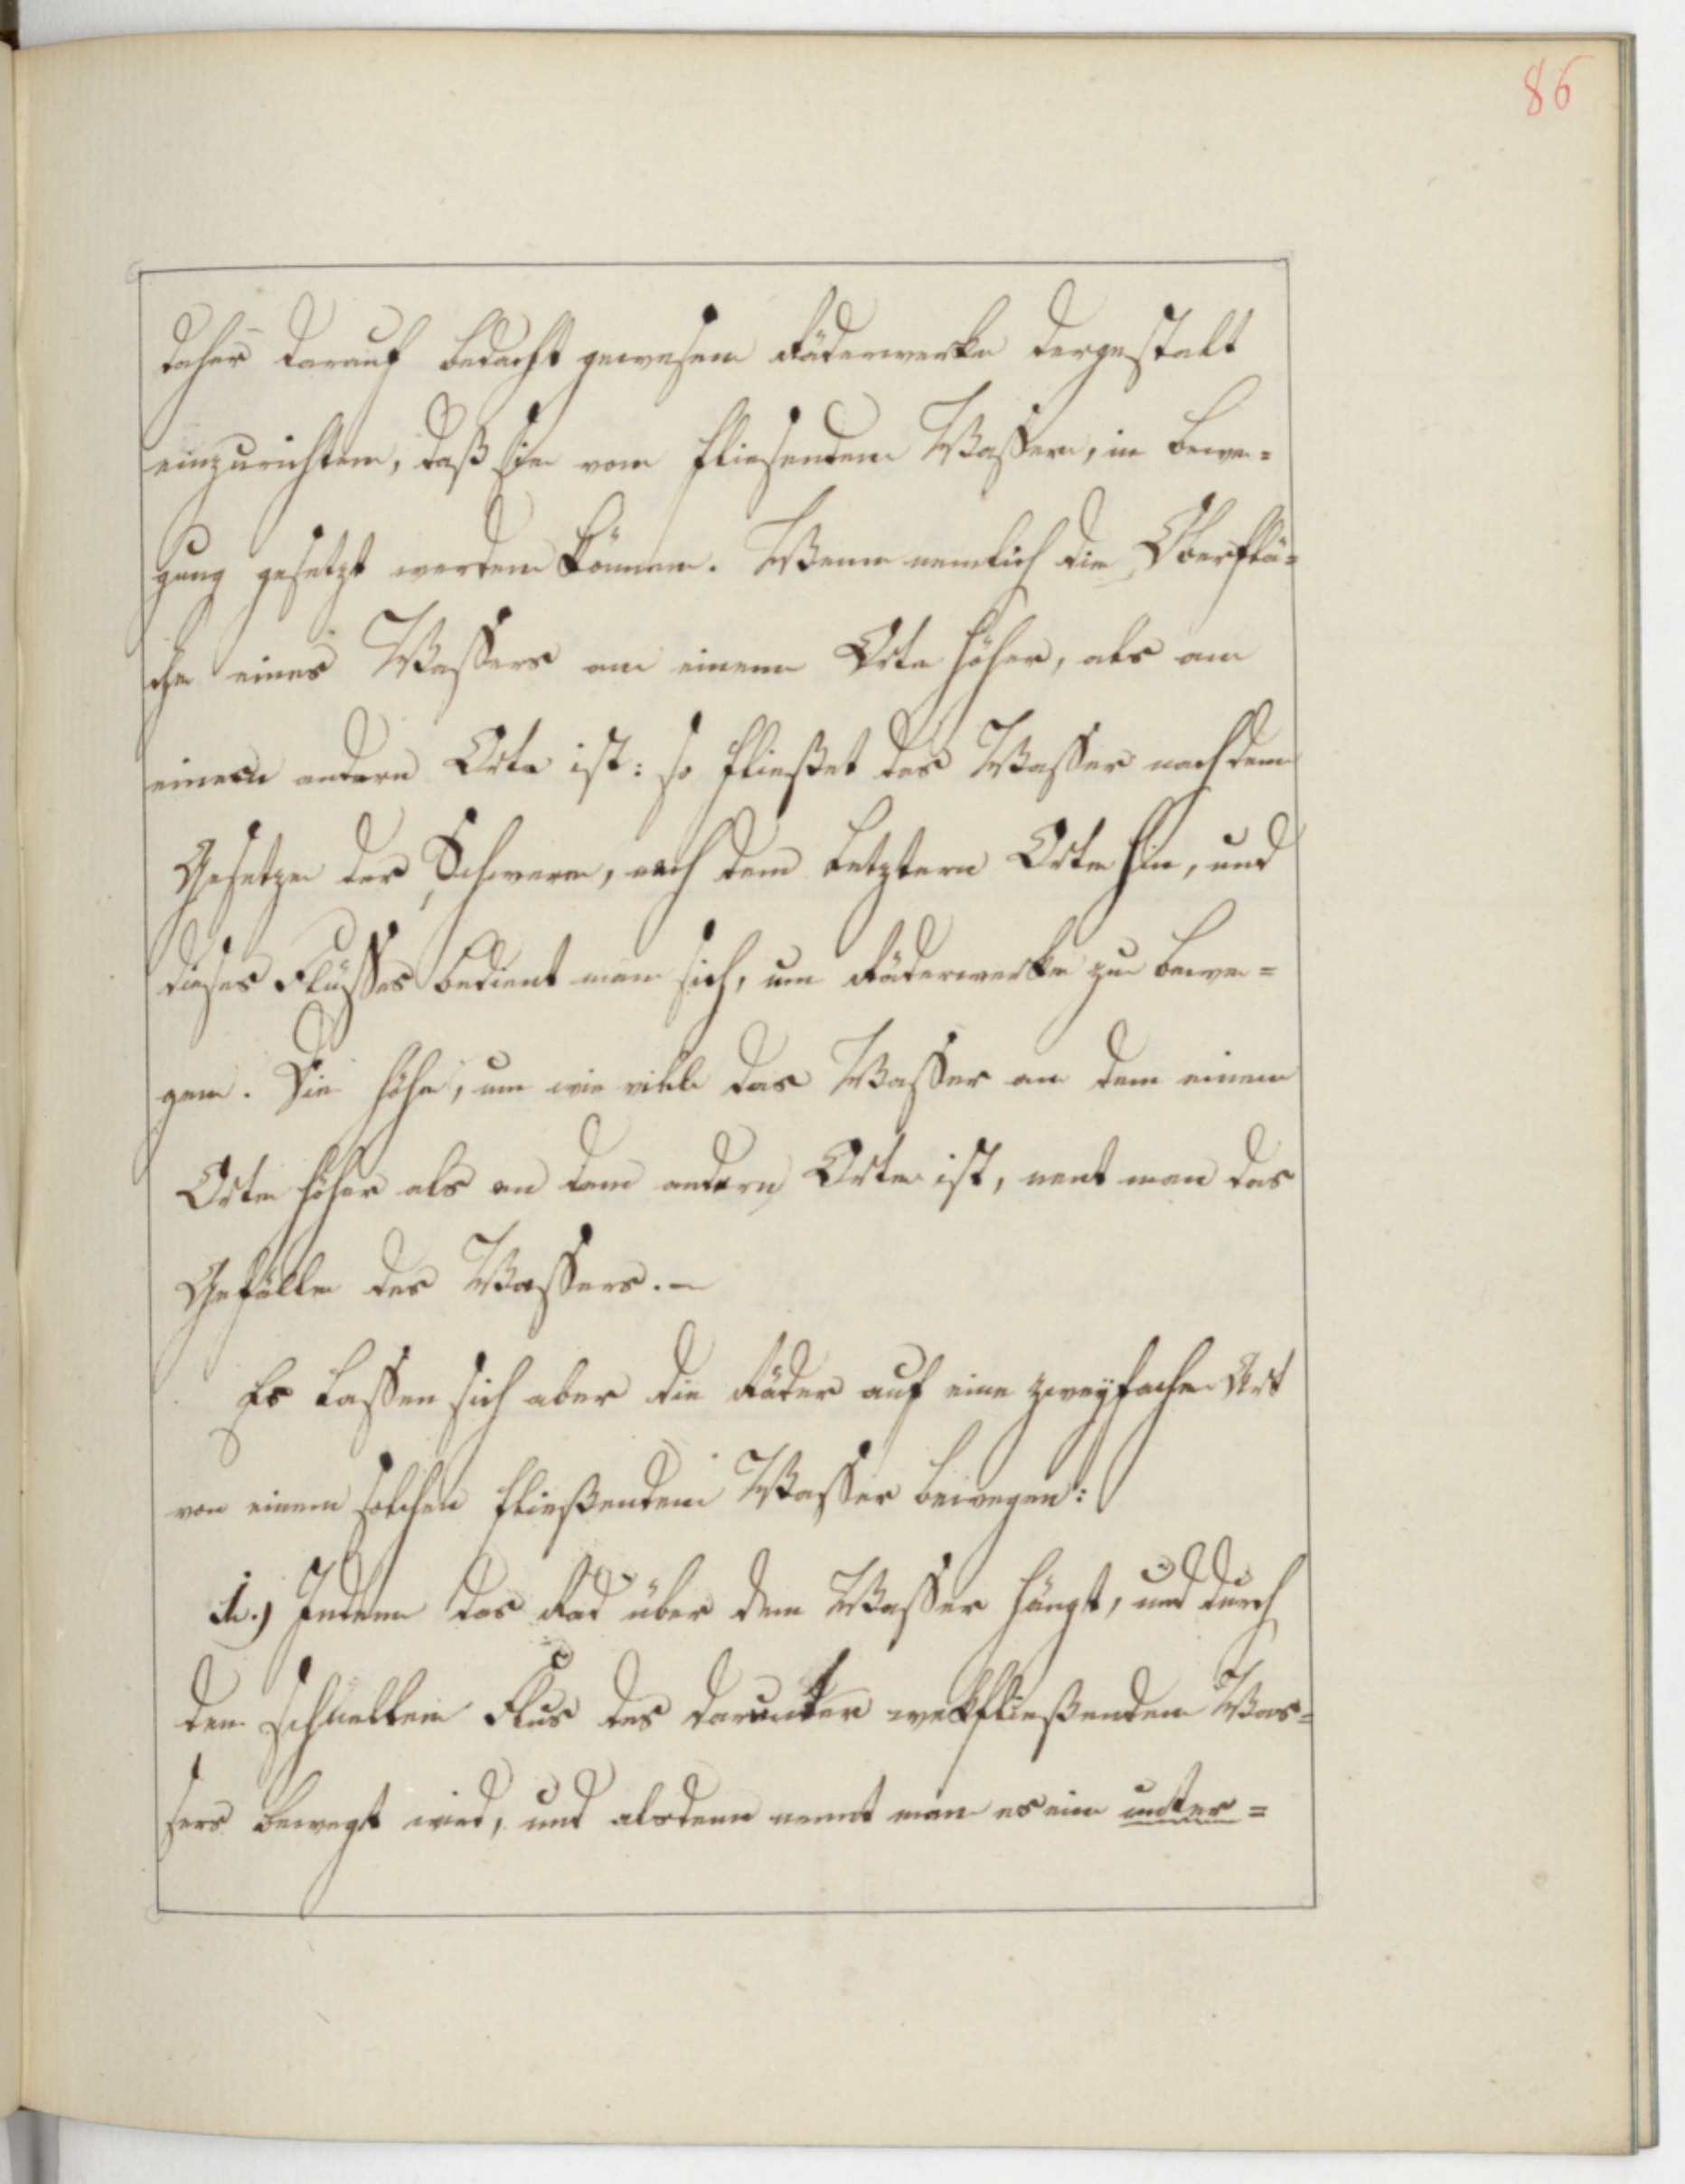 86
daher darauf bedacht gewesen Räderwerke dergestalt
einzurichten, daß sie vom fliesenden Wassern, in bewe=
gung gesetzt werden können. Wenn nemlich die Oberflä=
che eines Wassers an einem Orte höher, als an
einem andern Orte ist: so fließet das Wasser nach dem
Gesetze der Schwere, nach dem letztern Orte hin, und
dieses Flusses bedient man sich, um Räderwerke zu bewe=
gen. Die Höhe, um wie viele das Wasser an dem einem
Orte höher als an dem andern Orte ist, nent man das
Gefälle des Wassers. –
Es lassen sich aber die Räder auf eine zweyfache Art
von einem solchen fließendem Wasser bewegen:
1.) Indem das Rad über dem Wasser hängt, und durch
den schnellen Flus des darunter wekfließenden Was=
sers bewegt wird, und alsdenn nennt man es ein unter=